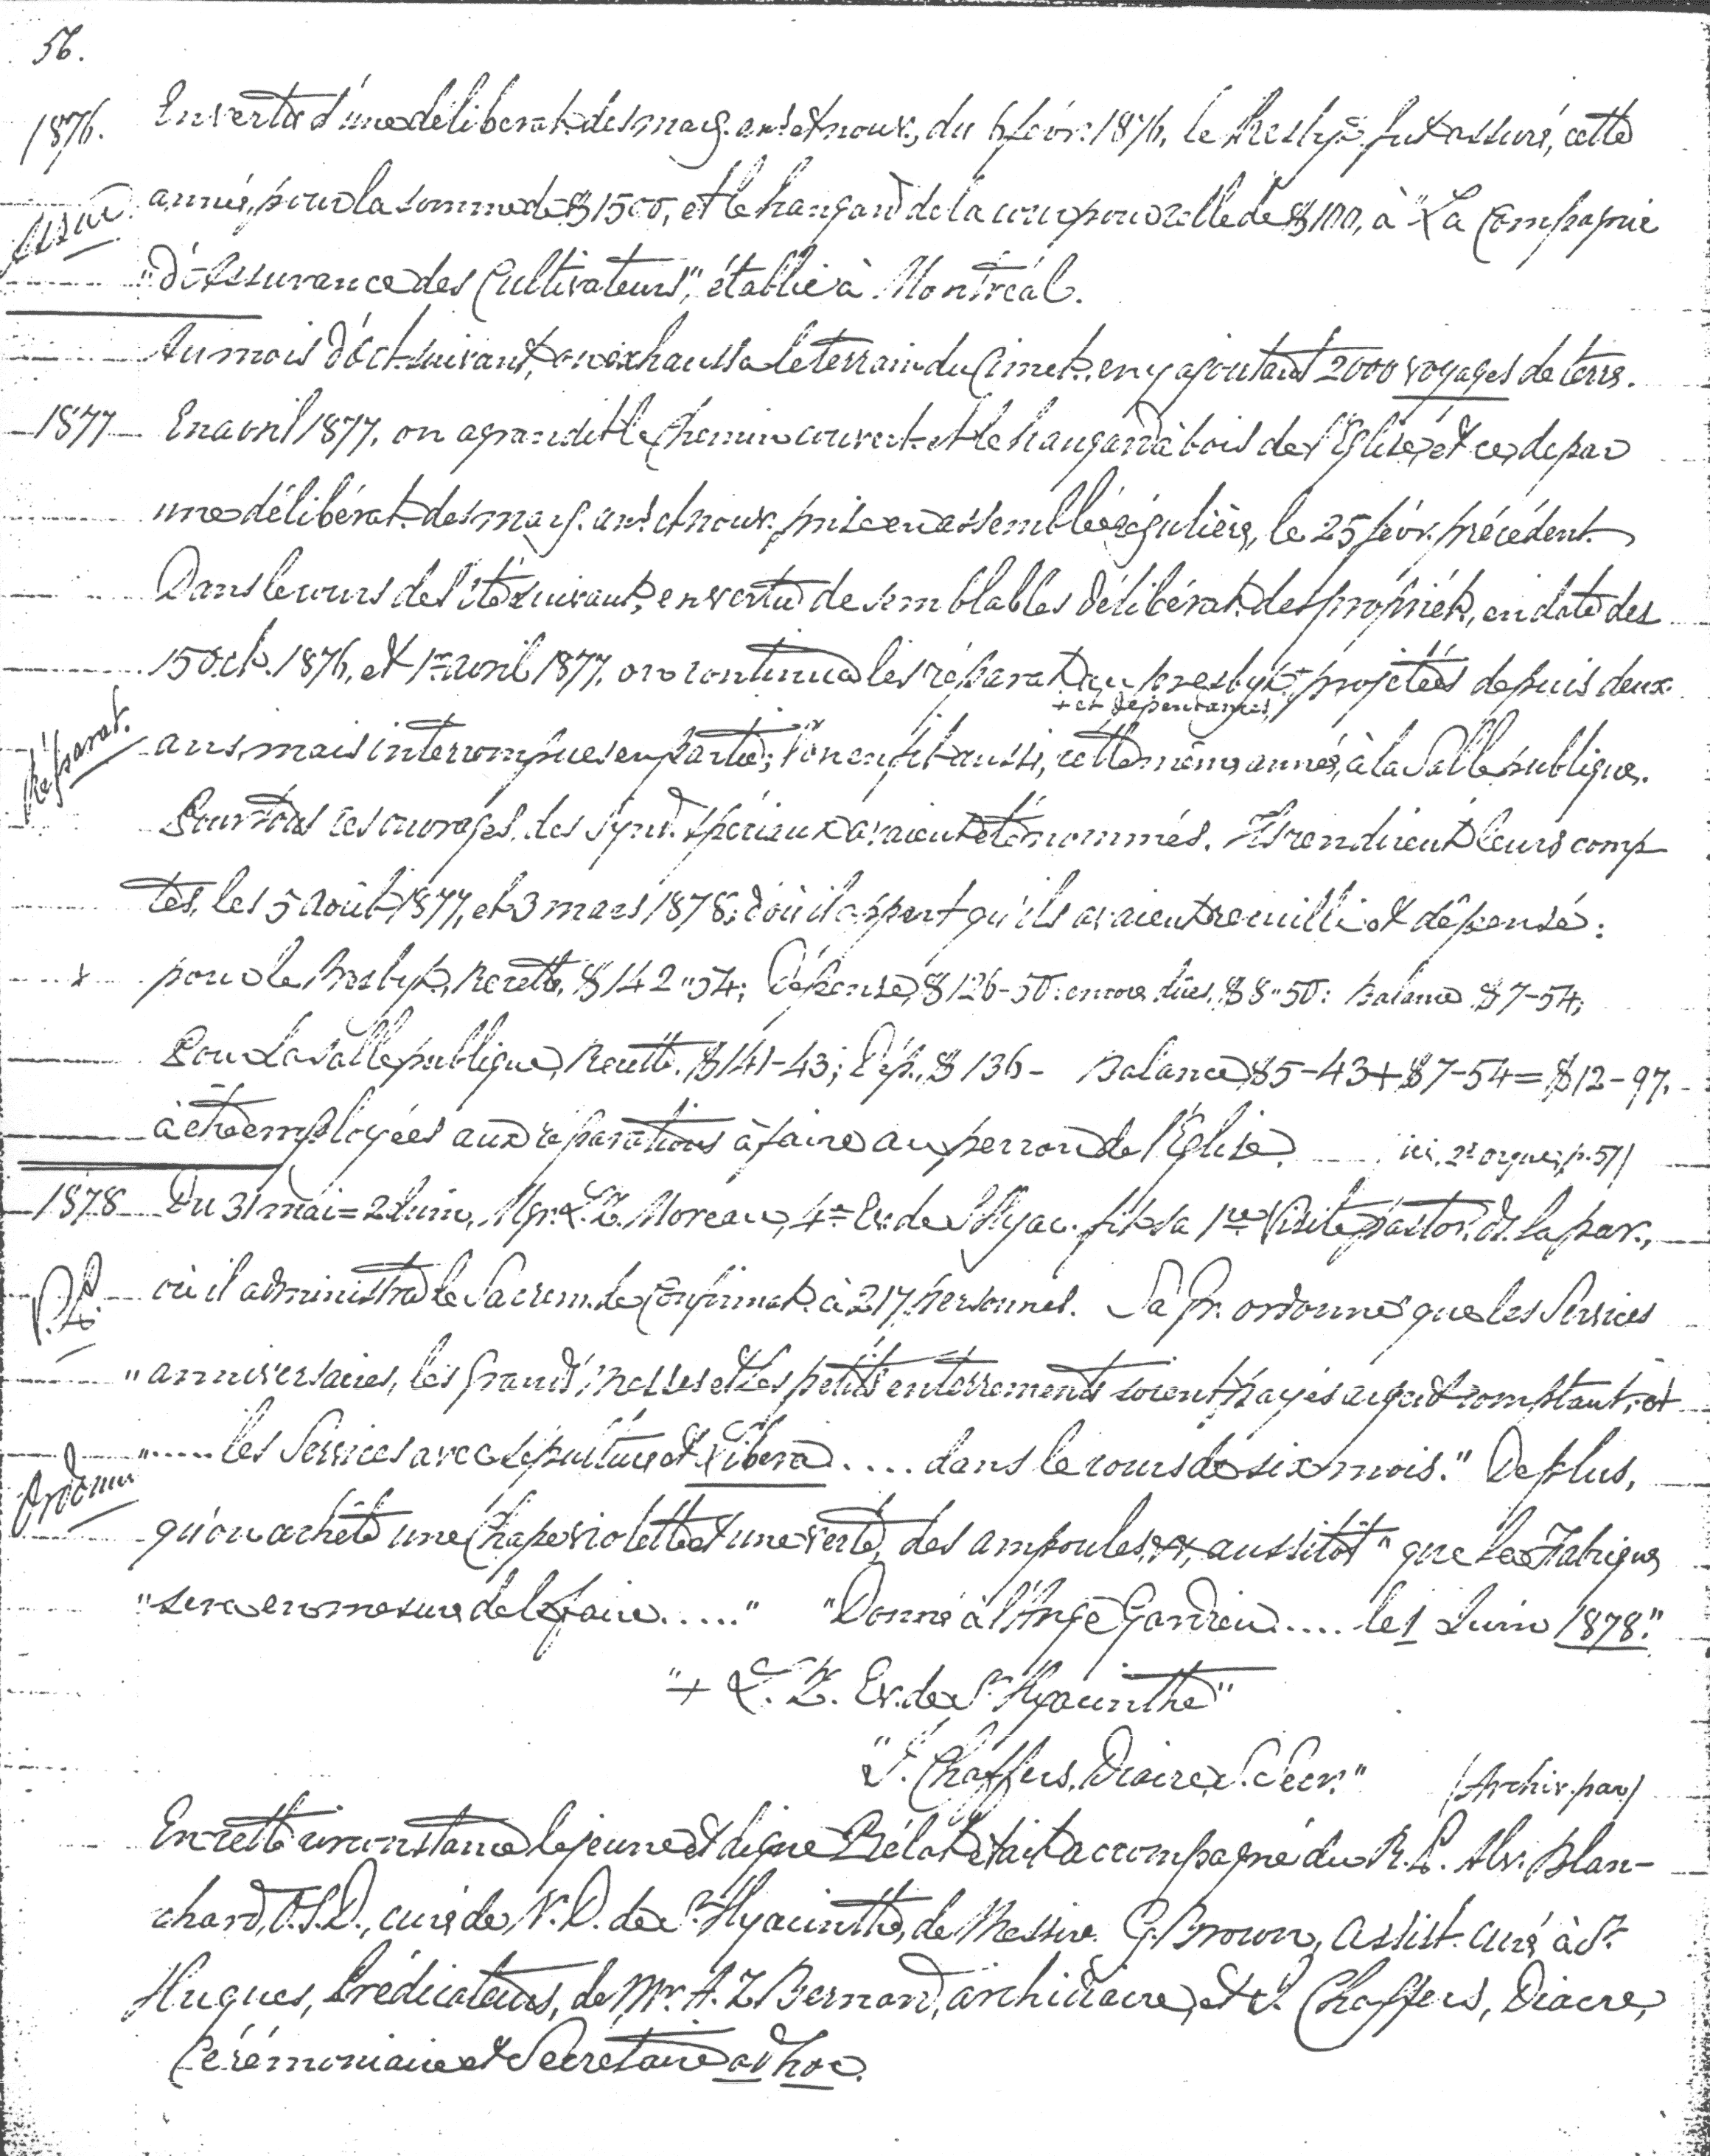 56.
1876. En vertu d'une délibérat. des marg. anc. et nouv., du 6 févr. 1876, le Presbyt. fut assuré, cette
année, pour la somme de $1500, et le hangard de la cour pour celle de $100, à "La Compagnie
"d'Assurance des Cultivateurs", établie à Montréal.
Au mois d'Oct. suivant, on exhaussa le terrain du Cimet. en y ajoutant 2000 voyages de terre.
1877 En avril 1877, on agrandit le Chemin couvert et le hangard à bois de l'Eglise, et ce, de par
une délibérat. des marg. anc. et nouv. prise en assemblée régulière, le 25 févr. précédent.
Dans le cours de l'été suivant, en vertu de semblables délibérat. des propriét., en date des
15 Oct. 1876, et 1er avril 1877, on continua les réparat. au presbyt.+ projetées depuis deux
+ et dépendances,
Réparat. ans, mais interrompues en partie; l'on en fit aussi, cette même année, à la Salle publique.
Pour tous ces ouvrages, des Synd. spéciaux avaient été nommés. Ils rendirent leurs comp
tes, les 5 Août 1877, et 3 mars 1878, d'où il appert qu'ils avaient recueilli et dépensé:
pour le Presbyt., Recette, $142"54; Dépense, $126-50: encore dûes, $8"50: Balance $7-54;
Pour la Salle publique, Recette. $141-43; Dép., $136- Balance $5-43+$7-54=$12-97.
à être employées aux réparations à faire au perron de l'Eglise. ici, 2d orgue, p. 57)
1878 Du 31 mai=2 Juin, Mgr. L. Z. Moreau, 4e Ev. de St Hyac. fit sa 1re Visite pastor. de la par.,
où il administra le Sacrem. de Confirmat. à 217 personnes. Sa Gr. ordonne que les Services
"anniversaires, les Grand'messes et les petits enterrements soient payés argent comptant, et
Ordonn. "..... les Services avec sépulture et Libera .... dans le cours de six mois." De plus,
qu'on achète une Chape violette et une verte, des ampoules, &, aussitôt "que la Fabrique
"sera en mesure de le faire....." "Donné à l'Ange Gardien .... le 1 Juin 1878."
"+ L. Z. Ev. de St Hyacinthe"
"J. Chaffers, Diacre, S. Secr." (Archiv. par)
En cette circonstance le jeune et digne Prélat était accompagné du R. P. Alv. Blan-
chard, O.S.D., curé de N. D. de St Hyacinthe, de Messire G. Brown, assist. curé à St
Hugues, Prédicateurs, de Mr. A. Z. Bernard, archidiacre, et J. Chaffers, Diacre,
Cérémoniaire et Secrétaire ad hoc.